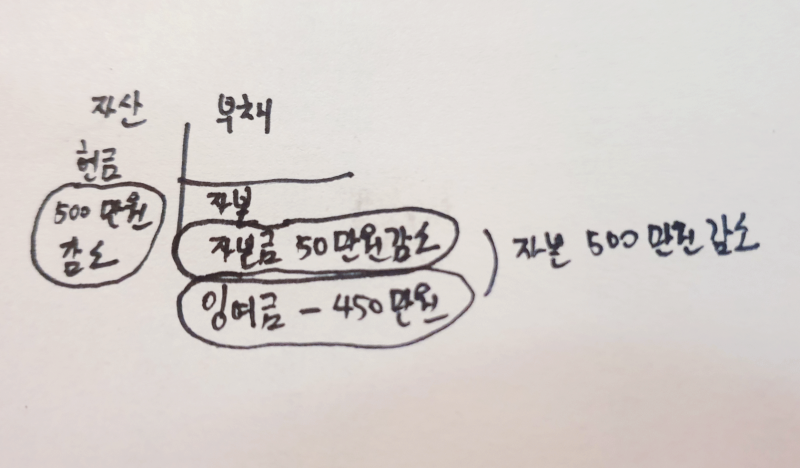 자산 부채
현금
500만원
감소
자본
자본금 50만원감소
잉여금 - 450만원
자본 500만원감소